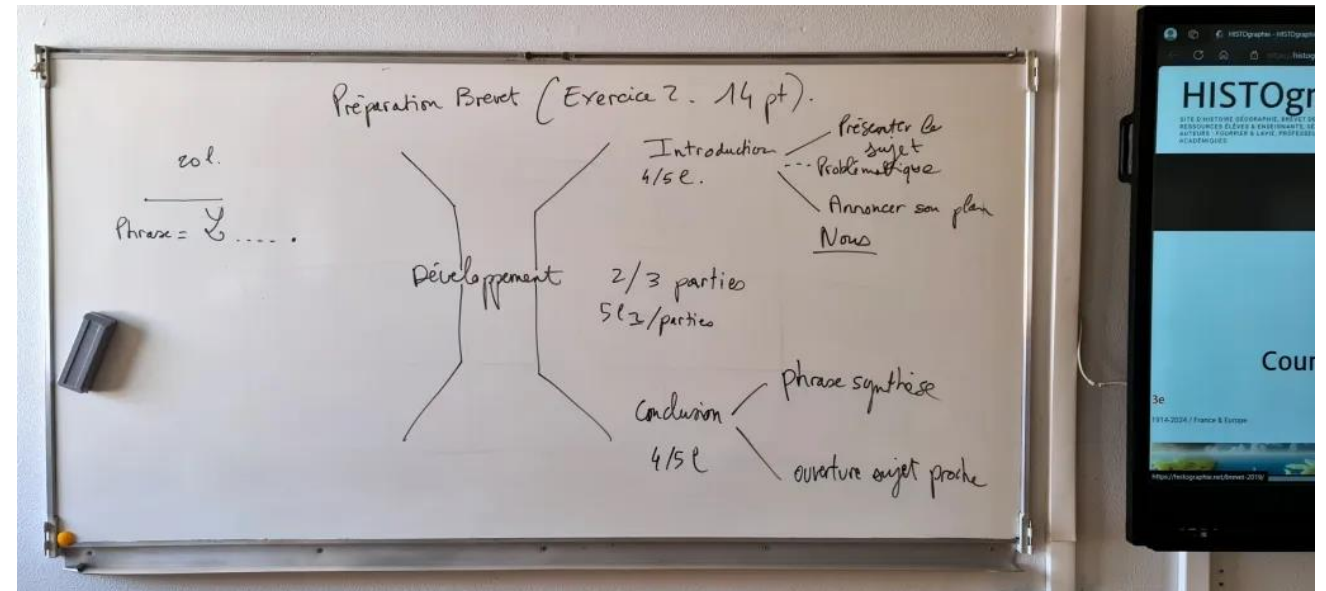 Préparation Brevet (Exercice 2. 14 pt).
20 l.
Phrase = .... .
Introduction
4/5 l.
Présenter le
sujet
Problématique
Annoncer son plan
Nous
Développement
2/3 parties
5 l /parties
Conclusion
4/5 l
phrase synthèse
ouverture sujet proche
HISTOgraphie - HISTOgraphie
HISTOgr
SITE D'HISTOIRE GÉOGRAPHIE, BREVET
RESSOURCES ÉLÈVES & ENSEIGNANTS
AUTEURS : FOURRIER & LAVIE, PROFESSE
ACADÉMIQUES
Cour
3e
1914-2024 / France & Europe
https://histographie.net/brevet-2019/